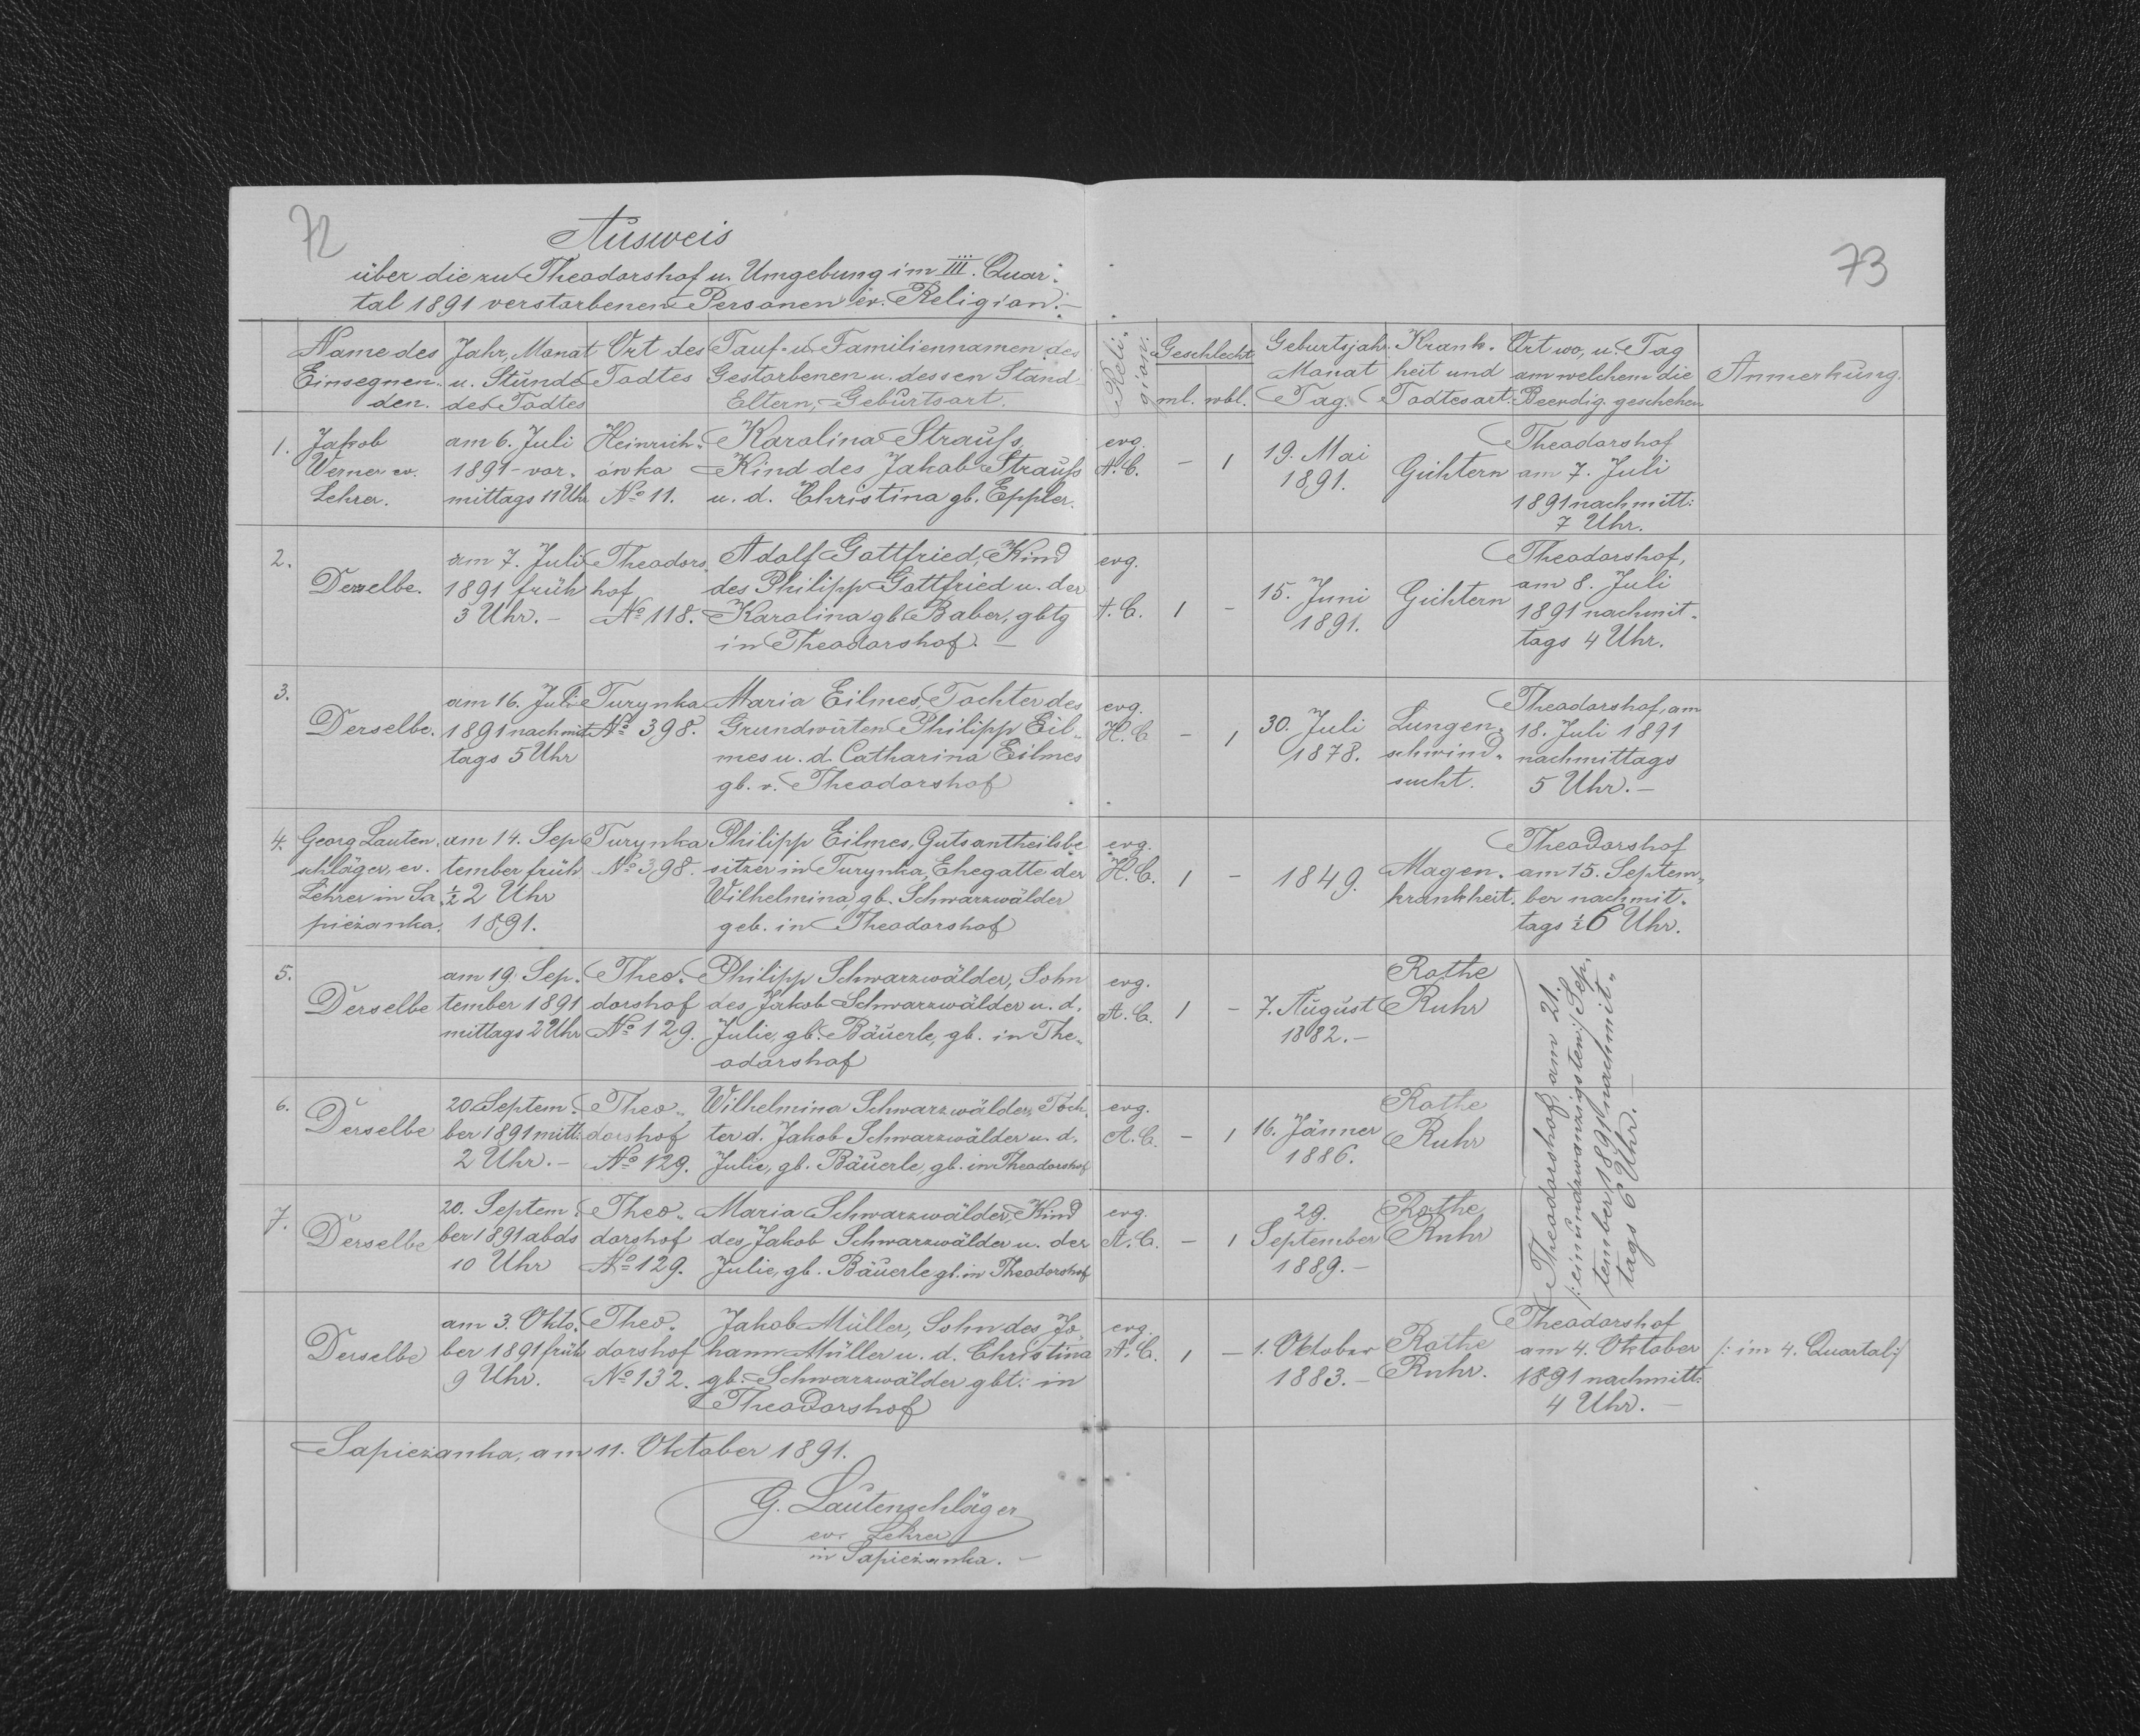 72
73
Ausweis
über die zu Theodorshof u. Umgebung im III. Quar-
tal 1891 verstorbenen Personen ev. Religion.
Name des
Einsegnen-
den.
Jahr, Monat
u. Stunde
des Todtes
Ort des
Todtes
Tauf- u. Familiennamen des
Gestorbenen u. dessen Stand
Eltern, Geburtsort.
Reli-
gion.
Geschlecht
ml. wbl.
Geburtsjahr
Monat
Tag.
Krank-
heit und
Todtesart.
Ort wo, u. Tag
am welchem die
Beerdig. geschehen
Anmerkung.
1.
Jakob
Werner ev.
Lehrer.
am 6. Juli
1891 - vor-
mittags 11 Uhr
Heinrich-
ówka
No 11.
Karolina Strauss,
Kind des Jakob Strauss
u. d. Christina gb. Eppler.
evg.
A. C.
- 1
19. Mai
1891.
Gichtern
Theodorshof
am 7. Juli
1891 nachmitt:
7 Uhr.
2.
Derselbe.
am 7. Juli
1891 früh
3 Uhr. -
Theodors-
hof
No 118.
Adolf Gottfried, Kind
des Philipp Gottfried u. der
Karolina gb. Baber, gbtg
in Theodorshof. -
evg.
A. C.
1 -
15. Juni
1891.
Gichtern
Theodorshof,
am 8. Juli
1891 nachmit-
tags 4 Uhr.
3.
Derselbe.
am 16. Juli
1891 nachmit
tags 5 Uhr
Turynka
No 398.
Maria Eilmes, Tochter des
Grundwirten Philipp Eil-
mes u. d. Catharina Eilmes
gb. v. Theodorshof
evg.
H. C
- 1
30. Juli
1878.
Lungen-
schwind-
sucht.
Theodorshof, am
18. Juli 1891
nachmittags
5 Uhr. -
4.
Georg Lauten-
schläger, ev.
Lehrer in Sa
pieżanka.
am 14. Sep
tember früh
½ 2 Uhr
1891.
Turynka
No 398.
Philipp Eilmes, Gutsantheilsbe
sitzer in Turynka, Ehegatte der
Wilhelmina, gb. Schwarzwälder
geb. in Theodorshof
evg.
H. C.
1 -
1849.
Magen-
krankheit.
Theodorshof
am 15. Septem-
ber nachmit-
tags ½ 6 Uhr.
5.
Derselbe
am 19. Sep-
tember 1891
mittags 2 Uhr
Theo-
dorshof
No 129.
Philipp Schwarzwälder, Sohn
des Jakob Schwarzwälder u. d.
Julie, gb. Bäuerle, gb. in The-
odorshof
evg.
A. C.
1 -
7. August
1882. -
Rothe
Ruhr
Theodorshof, am 21.
/: einundzwanzigsten :/ Sep-
tember 1891 nachmit-
tags 6 Uhr. -
6.
Derselbe
20. Septem-
ber 1891 mitt:
2 Uhr. -
Theo-
dorshof
No 129.
Wilhelmina Schwarzwälder, Toch-
ter d. Jakob Schwarzwälder u. d.
Julie, gb. Bäuerle, gb. in Theodorshof
evg.
A. C.
- 1
16. Jänner
1886.
Rothe
Ruhr
7.
Derselbe
20. Septem-
ber 1891 abds
10 Uhr
Theo-
dorshof
No 129.
Maria Schwarzwälder, Kind
des Jakob Schwarzwälder u. der
Julie, gb. Bäuerle gb. in Theodorshof
evg.
A. C.
- 1
29.
September
1889. -
Rothe
Ruhr
Derselbe
am 3. Okto-
ber 1891 früh
9 Uhr.
Theo-
dorshof
No 132.
Jakob Müller, Sohn des Jo
hann Müller u. d. Christina
gb. Schwarzwälder gbt: in
Theodorshof
evg.
A. C.
1 -
1. Oktober
1883. -
Rothe
Ruhr.
Theodorshof
am 4. Oktober
1891 nachmitt:
4 Uhr. -
/: im 4. Quartal :/
Sapieżanka, am 11. Oktober 1891.
G. Lautenschläger
ev. Lehrer
in Sapieżanka. -